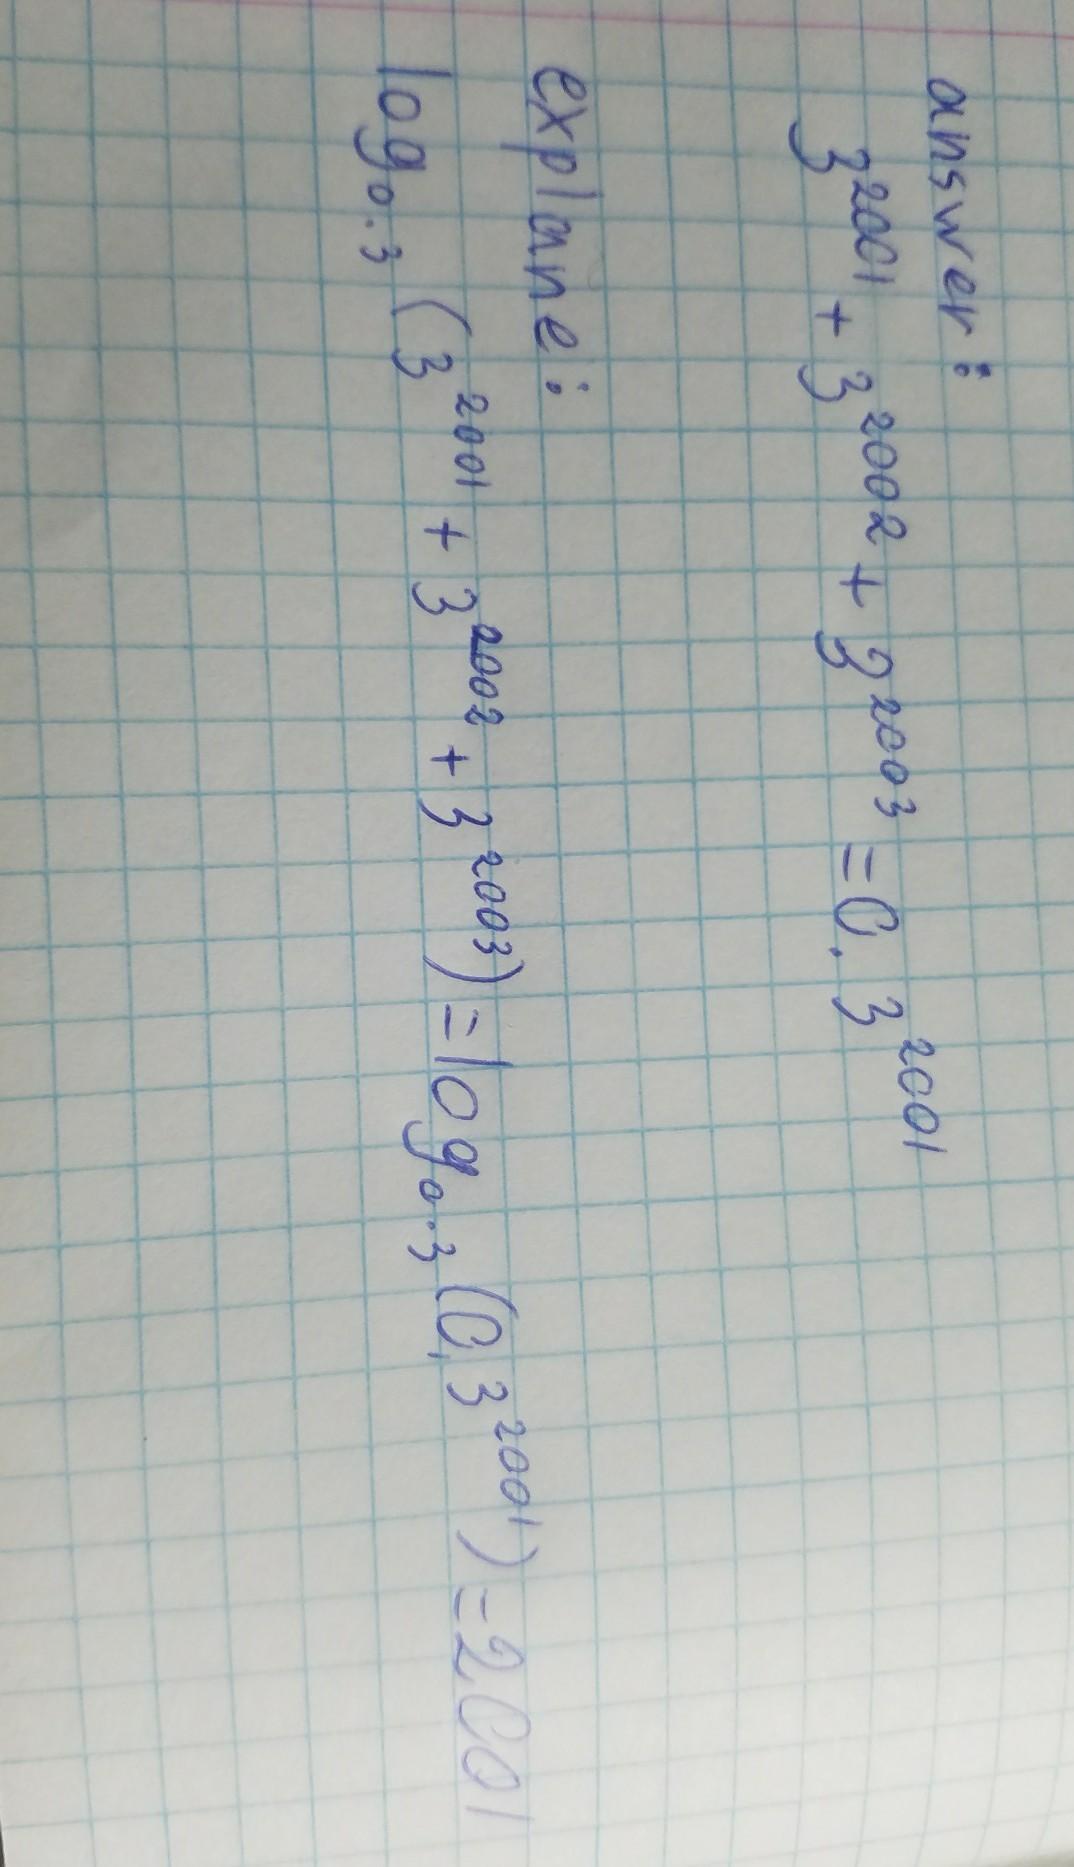 answer:
3^2001 + 3^2002 + 3^2003 = 0.3^2001
explane:
log_0.3 (3^2001 + 3^2002 + 3^2003) = log_0.3 (0,3^2001) = 2001